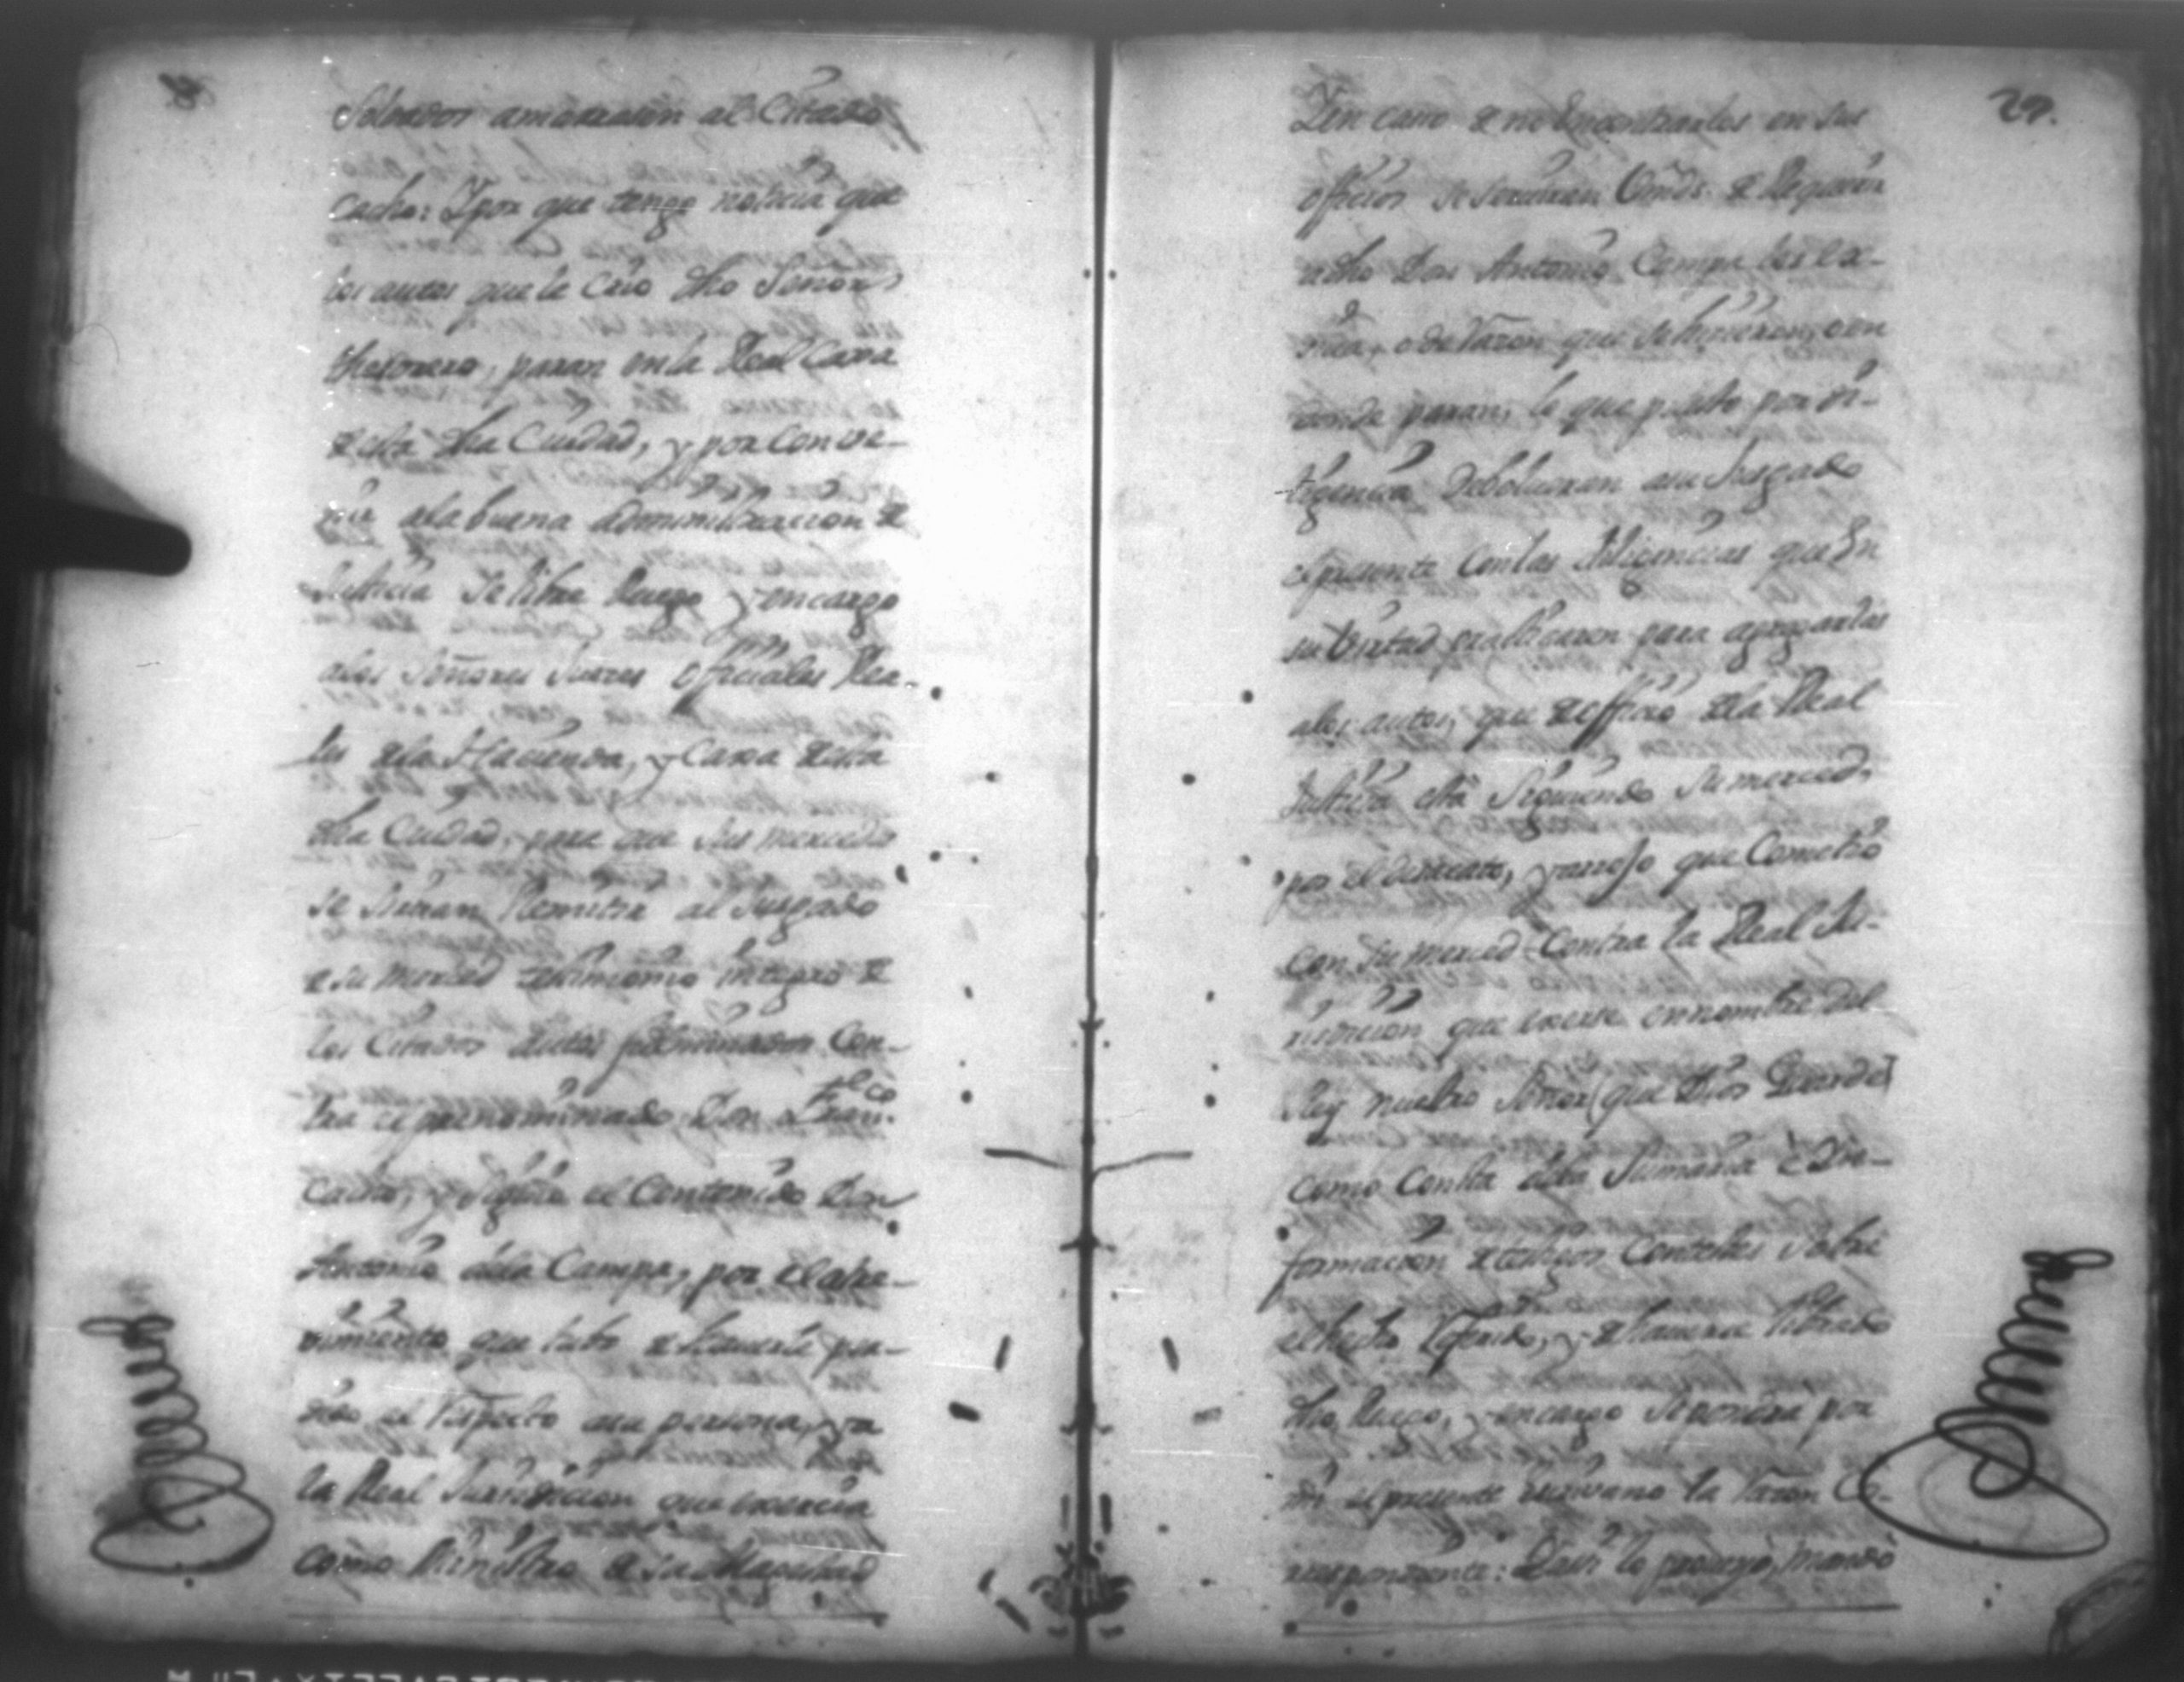 Soldados amarrasen al Citado
Cacho: Y por que tengo noticia que
los autos que le crio dho Señor
thesorero, paran en la Real Caxa
de esta dha Ciudad, y por conve-
nir a la buena administracion de
Justicia se libre Ruego y encargo
a los Señores Jueces officiales Rea-
les de la Hacienda, y Caxa de esta
dha Ciudad, para que sus mercedes
se sirvan Remitir al Juzgado
de su merced testimonio integro de
los Citados autos Con-
tra el prenominado Don Fran.co
Cacho, y siguio el Contenido Don
Antonio de la Campa, por el atre-
vimiento que tubo de haverle per-
dido el respecto a su persona, y a
la Real Jurisdicion que exercia
como Ministro de su Magestad
29.
Y en caso de no encontrarles en sus
officios se serviran Vmds. de Requerir
a dho Don Antonio Campa los ex-
siva, o de razon que se hisieron, o en
donde paran, lo que puesto por di-
ligencia debolveran a su Juzgado
el presente Con las diligencias que En
su Virtud practicaren para agregarlas
a los autos, que de officio de la Real
Justicia està Siguiendo su merced,
por el desacato, y arrojo que Cometio
con su merced Contra la Real Ju-
risdicion que exerse en nombre del
Rey nuestro Señor (que Dios Guarde)
como Consta de la Sumaria è Yn-
formacion de testigos Contestes sobre
el hecho Referido, y de haverse librado
dho Ruego, y encargo se pondra por
mi el presente escrivano la razon Co-
rrespondiente: Y asi lo proveyò, mandò